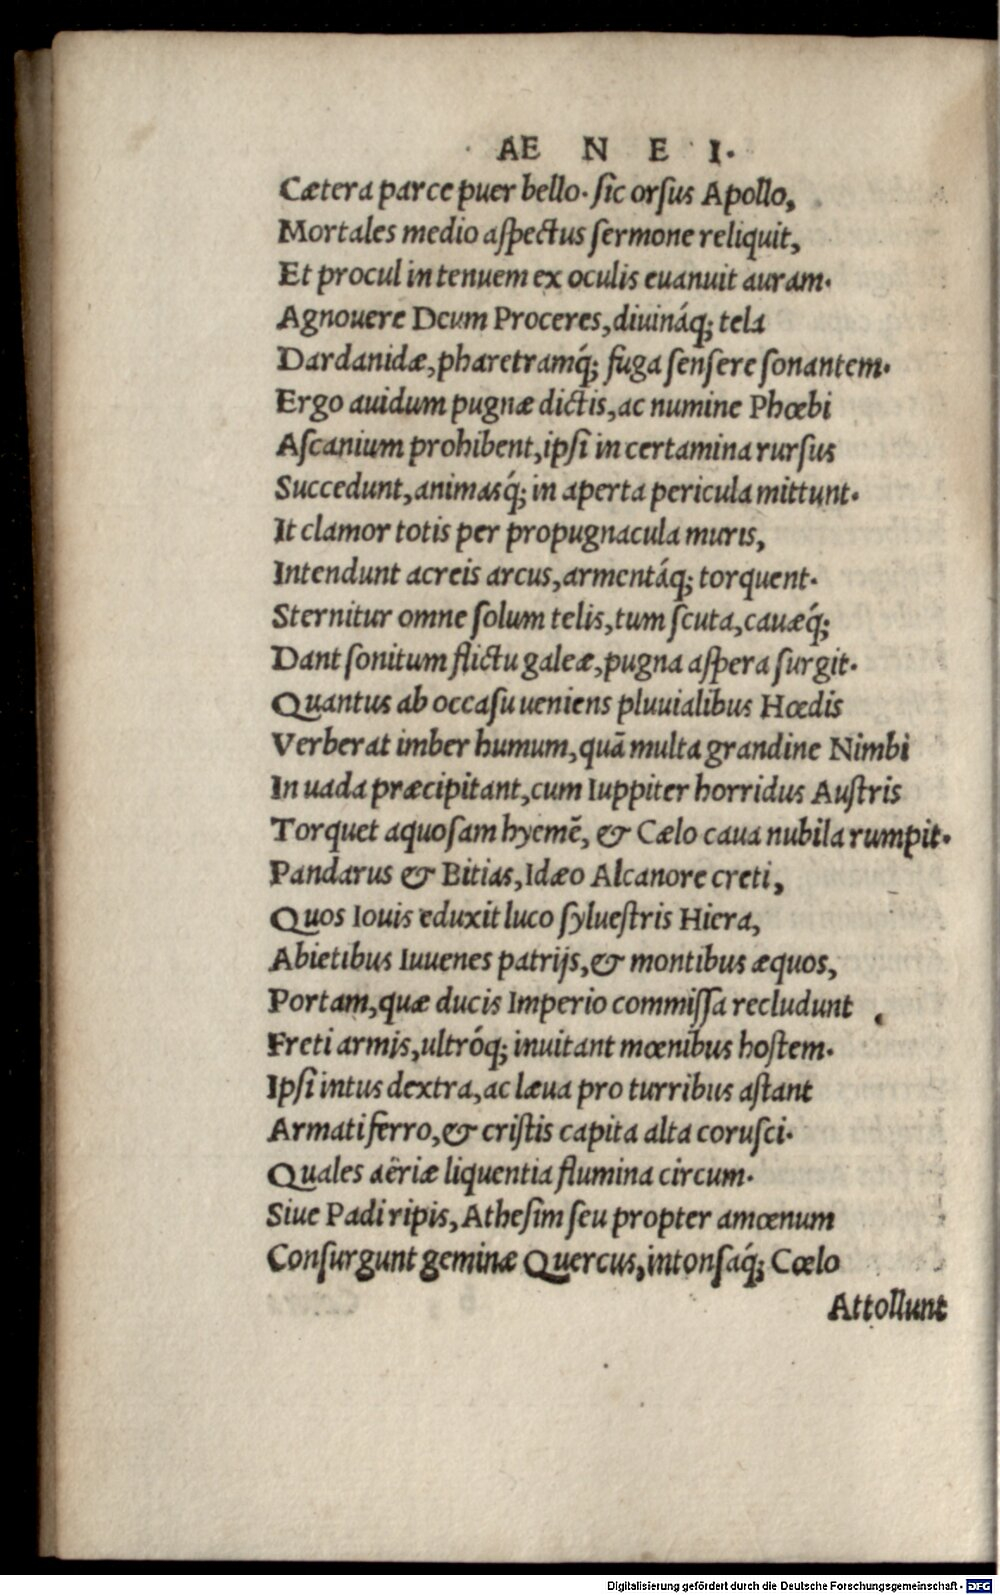 AE N E I.
Cætera parce puer bello. sic orsus Apollo,
Mortales medio aſpectus ſermone reliquit,
Et procul in tenuem ex oculis euanuit auram.
Agnouere Deum Proceres, diuináq; tela
Dardanidæ, pharetramq́; fuga ſenſere ſonantem.
Ergo auidum pugnæ dictis, ac numine Phœbi
Aſcanium prohibent, ipſi in certamina rurſus
Succedunt, animasq́; in aperta pericula mittunt.
It clamor totis per propugnacula muris,
Intendunt acreis arcus, armentáq; torquent.
Sternitur omne ſolum telis, tum ſcuta, cauæq́;
Dant ſonitum flictu galeæ, pugna aſpera ſurgit.
Quantus ab occaſu ueniens pluuialibus Hœdis
Verberat imber humum, quā multa grandine Nimbi
In uada præcipitant, cum Iuppiter horridus Auſtris
Torquet aquoſam hyemē, & Cælo caua nubila rumpit.
Pandarus & Bitias, Idæo Alcanore creti,
Quos Iouis eduxit luco ſylueſtris Hiera,
Abietibus Iuuenes patrijs, & montibus æquos,
Portam, quæ ducis Imperio commiſſa recludunt
Freti armis, ultróq; inuitant mœnibus hoſtem.
Ipſi intus dextra, ac læua pro turribus aſtant
Armati ferro, & criſtis capita alta coruſci.
Quales aëriæ liquentia flumina circum.
Siue Padi ripis, Atheſim ſeu propter amœnum
Conſurgunt geminæ Quercus, intonſaq́; Cœlo
Attollunt
Digitalisierung gefördert durch die Deutsche Forschungsgemeinschaft - DFG